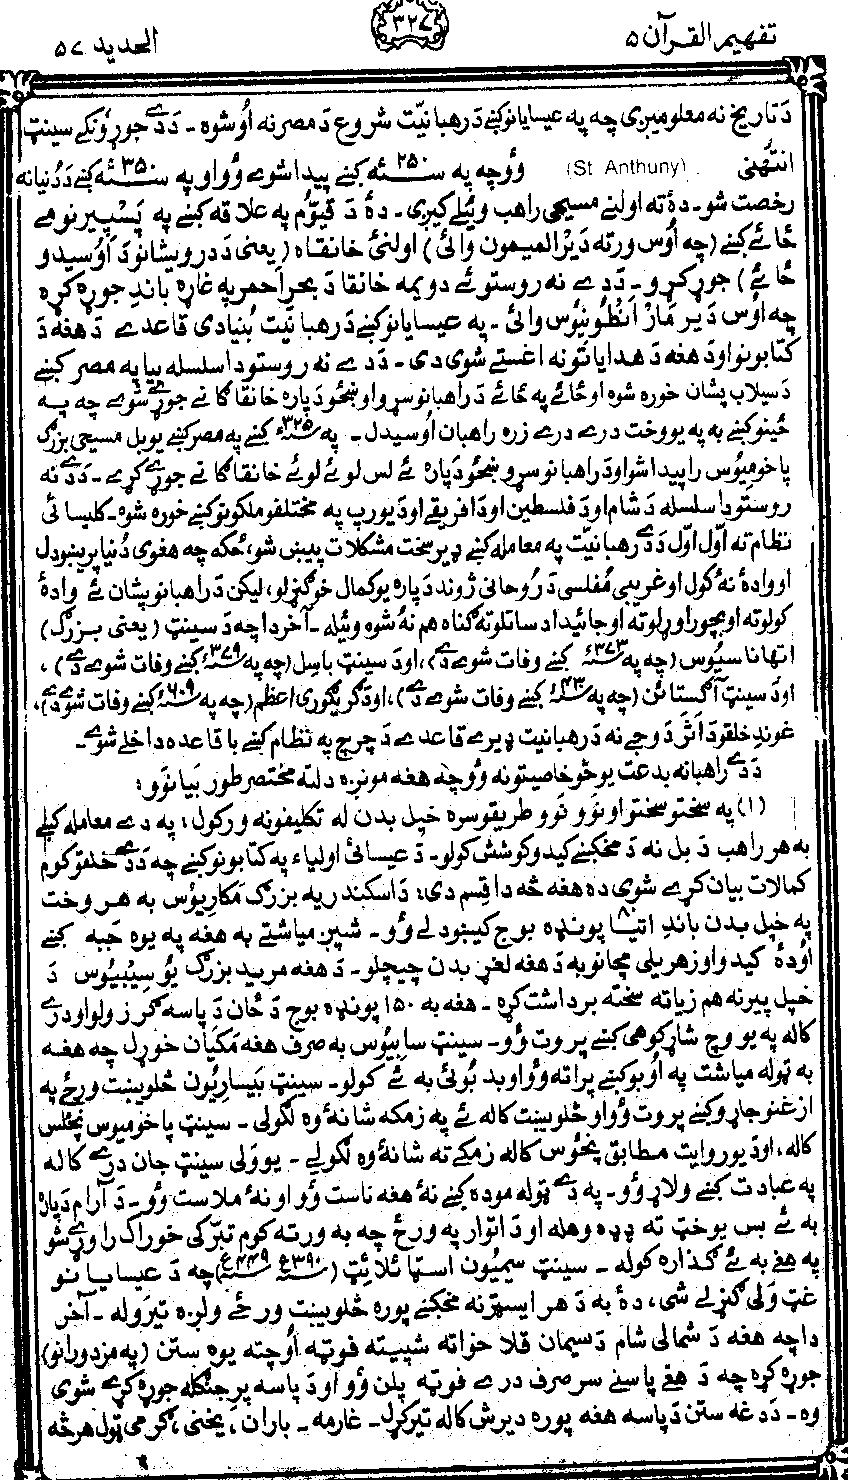 تفهيم القرآن ۵
۳۲۷
الحديد ۵۷
دَ تاريخ نه معلوميږي چه په عيسايانو کښې دَ رهبانيّت شروع دَ مصر نه اُوشوه ـ دَ دے جوړونکے سينټ
انتُهنی (St Anthuny) وُو چه په سنـــ۲۵۰ـــه کښې پيدا شوے وُو او په سنـــ۳۵۰ـــه کښې دَ دُنيا نه
رخصت شو ـ دهٔ ته اولنے مسيحی راهب وئيلے کيږی ـ دهٔ دَ فيّوم په علاقه کښې په پَسپير نومے
ځائے کښې (چه اُوس ورته دَيرُ الميمون وائی) اولنئ خانقاه (يعنی دَ درويشانو دَ اُوسيدو
ځائے) جوړ کړو ـ دَ دے نه روستو ئے دويمه خانقا دَ بحرِ احمر په غاړه باندِ جوړه کړه
چه اُوس دَير مار انطونيُوس وائی ـ په عيسايانو کښې دَ رهبانيّت بُنيادی قاعدے دَ هغه دَ
کتابونو او دَ هغه دَ هداياتو نه اغستے شوی دی ـ دَ دے نه روستو دا سلسله بيا په مصر کښې
دَ سيلاب پشان خوره شوه او ځائے په ځائے دَ راهبانو سړو او ښځو دَ پاره خانقاګانے جوړے شوے چه په
ځينو کښې به په يو وخت درے درے زره راهبان اُوسيدل ـ په سنـ۳۲۵ـه کښې په مصر کښې يو بل مسيحی بزرګ
پاخوميُوس راپيدا شو او دَ راهبانو سړو ښځو دَ پاره ئے لس لوئے لوئے خانقاګانے جوړے کړے ـ دَ دے نه
روستو دا سلسله دَ شام او دَ فلسطين او دَ افريقے او دَ يورپ په مختلفو ملکونو کښې خوره شوه ـ کليسائی
نظام ته اوّل اوّل دَ دے رهبانيّت په معامله کښې ډير سخت مشکلات پيښ شو، ځکه چه هغوی دُنيا پرېښودل
او وادهٔ نهٔ کول او غريبی مُفلسی دَ رُوحانی ژوند دَ پاره يو کمال خو ګڼلو، ليکن دَ راهبانو پشان ئے وادهٔ
کولو ته او بچو راوړلو ته او جائيداد ساتلو ته ګناه هم نهٔ شوه وئيله ـ آخر دا چه دَ سينټ (يعنی بزرګ)
اتهاناسيُوس (چه په سنـ۳۷۳ـه کښې وفات شوے دے)، او دَ سينټ باسِل (چه په سنـ۳۷۹ـه کښې وفات شوے دے)،
او دَ سينټ آګستائن (چه په سنـ۴۳۰ـه کښې وفات شوے دے)، او دَ ګريګوری اعظم (چه په سنـ۶۰۹ـه کښې وفات شوے دے)،
غوندِ خلقو دَ اثر دَ وجے نه دَ رهبانيت ډيرے قاعدے دَ چرچ په نظام کښې باقاعده داخلے شوے ـ
دَ دے راهبانه بدعت يو څو خاصيتونه وُو چه هغه مونږه دلته مختصر طور بيانوُو:
(۱) په سختو سختو او نوو نوو طريقو سره خپل بدن له تکليفونه ورکول، په دے معامله کښې
به هر راهب دَ بل نه دَ مخکښې کيدو کوشش کولو ـ دَ عيسائی اولياء په کتابونو کښې چه دَ دے خلقو کوم
کمالات بيان کړے شوی دِ هغه څه دا قِسم دی: دَ اسکندريه بزرګ مَکاريوُس به هر وخت
په خپل بدن باندِ اتيا ۸۰ پونډه بوج کيښودلے وُو ـ شپږ مياشتے به هغه په يوه جَبه کښې
اُودهٔ کيدو او زهريلی مچانو به دَ هغه لغړ بدن چيچلو ـ دَ هغه مريد بزرګ يُوسيبيُوس دَ
خپل پير نه هم زياته سخته برداشت کړه ـ هغه به ۱۵۰ پونډه بوج دَ ځان دَ پاسه ګرزولو او درے
کاله په يو وچ شاړ کوهی کښې پروت وُو ـ سينټ سابيُوس به صرف هغه مَکيان خوړل چه هغه
به ټوله مياشت په اُوبو کښې پراته وُو او بدبوئی به ئے کولو ـ سينټ بيساريُون څلويښت ورځے په
ازغنو جاړو کښې پروت وُو او څلويښت کاله ئے په زمکه شانهٔ وه لګولی ـ سينټ پاخوميوس پنځلس
کاله، او دَ يو روايت مطابق پنځوس کاله زمکے ته شانهٔ وه لګولے ـ يو ولی سينټ جان درے کاله
په عبادت کښې ولاړ وُو ـ په دے ټوله موده کښې نهٔ هغه ناست وُو او نهٔ ملاست وُو ـ دَ آرام دَ پاره
به ئے بس يو ځٹ ته ډډه وهله او دَ اتوار په ورځ چه به ورته کوم تبرّکی خوراک راوړے شو
په هغے به ئے ګذاره کوله ـ سينټ سيميُون اسټائلائټ (سنـ۳۹۰ـهء سنـ۴۴۹ـهء) چه دَ عيسايانو
غټ ولی ګڼلے شی، دهٔ به دَ هر ايسټر نه مخکښے پوره څلويښت ورځے ولږه تيروله ـ آخر
دا چه هغه دَ شمالی شام دَ سيمان قلا خواته شپيته فوټه اُوچته يوه ستن (په مزدورانو)
جوړه کړه چه دَ هغے پاسنے سر صرف درے فوټه پلن وُو او دَ پاسه پرِ جنګله جوړه کړے شوی
وه ـ دَ دغه ستن دَ پاسه هغه پوره ديرش کاله تير کړل ـ غارمه ـ باران، يخنی، ګرمی ټول هر څه